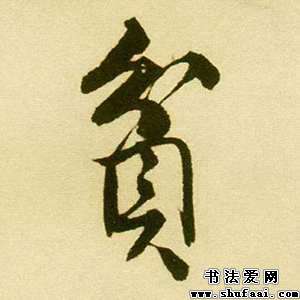 貧
书法爱网
www.shufaai.com